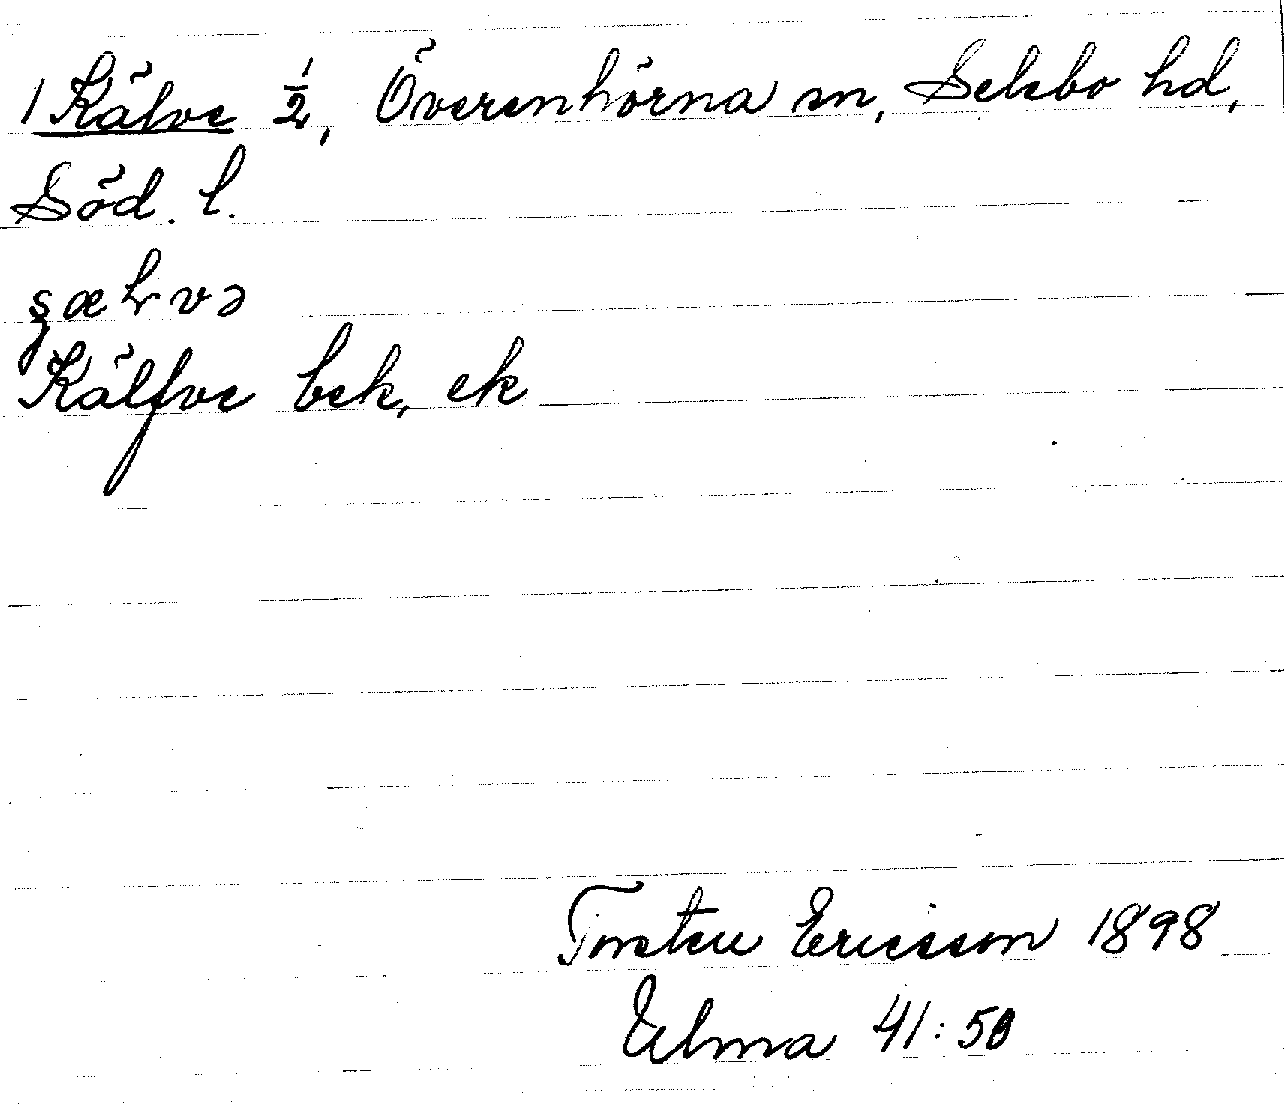 1 Kälve 1/2, Överenhörna sn, Selebo hd,
Söd. l.
Kälfve bek, ek
Torsten Ericsson 1898
Ulma 41:50